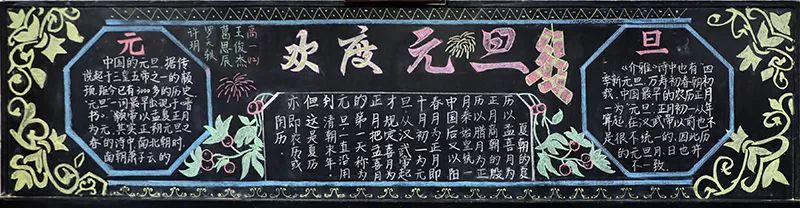 欢度元旦
高一(12)
王俊杰
葛思辰
许玥
元
中国的元旦,据传
说起于三皇五帝之一的颛
顼,距今已有3000多的历史
"元旦"一词最早出现于《晋
书》。"颛帝以孟夏正月
为元,其实正朔元旦之
春的诗中,南北朝时,
南朝萧子云的
夏朝的夏
历以孟喜月为
正月,商朝的殷
历以腊月为正
月,秦始皇统一
中国后,又以阳
春月为正月即
十月初一为元
旦,从汉武帝起
才规定喜月为
正月,把孟喜月
的第一天称为
元旦,一直沿用
到清朝末年。
但这是夏历
亦即农历或
阴历。
旦
《介雅》诗中也有"四
季新元旦,万寿初春朝
载。中国最早的农历正月初
一为"元旦"正月初一从
算起,在汉武帝以前也不
是很不统一的。因此,历
的元旦月、日也并
不一致。